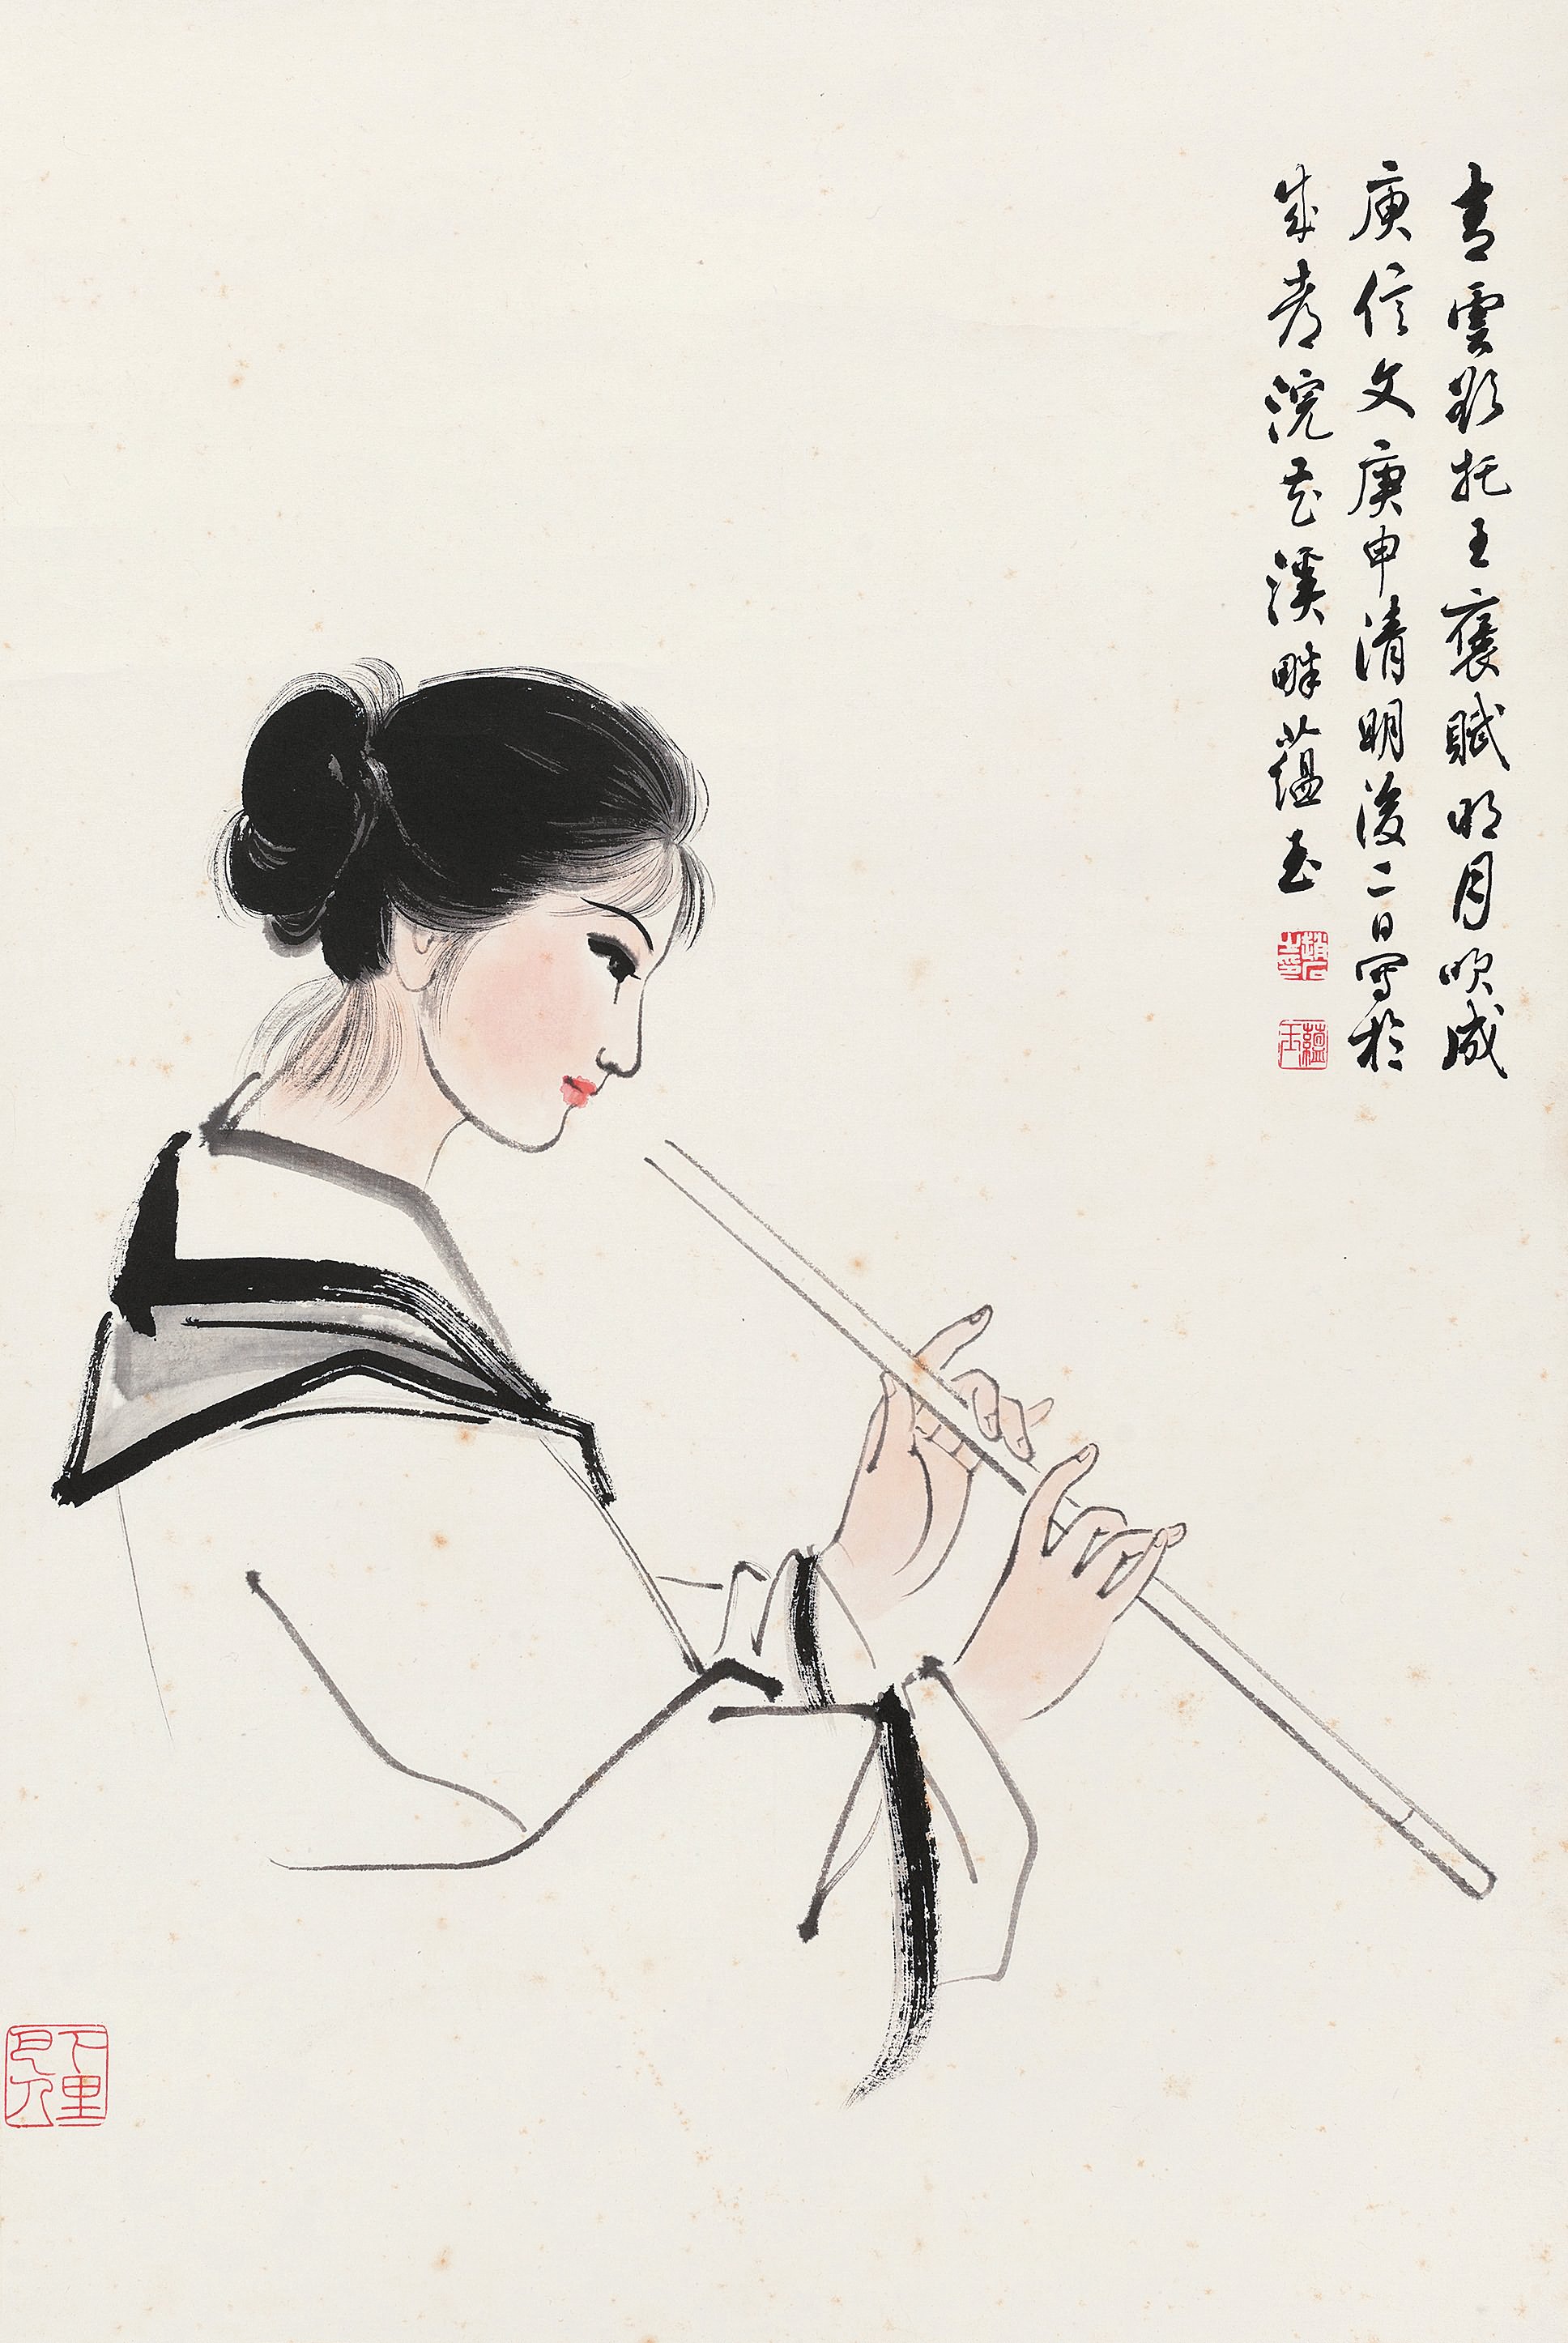 青雲欲托王褒賦明月吹成
庾信文庚申清明後二日寫於
成都浣花溪畔蘊玉
蘊玉
下里巴人